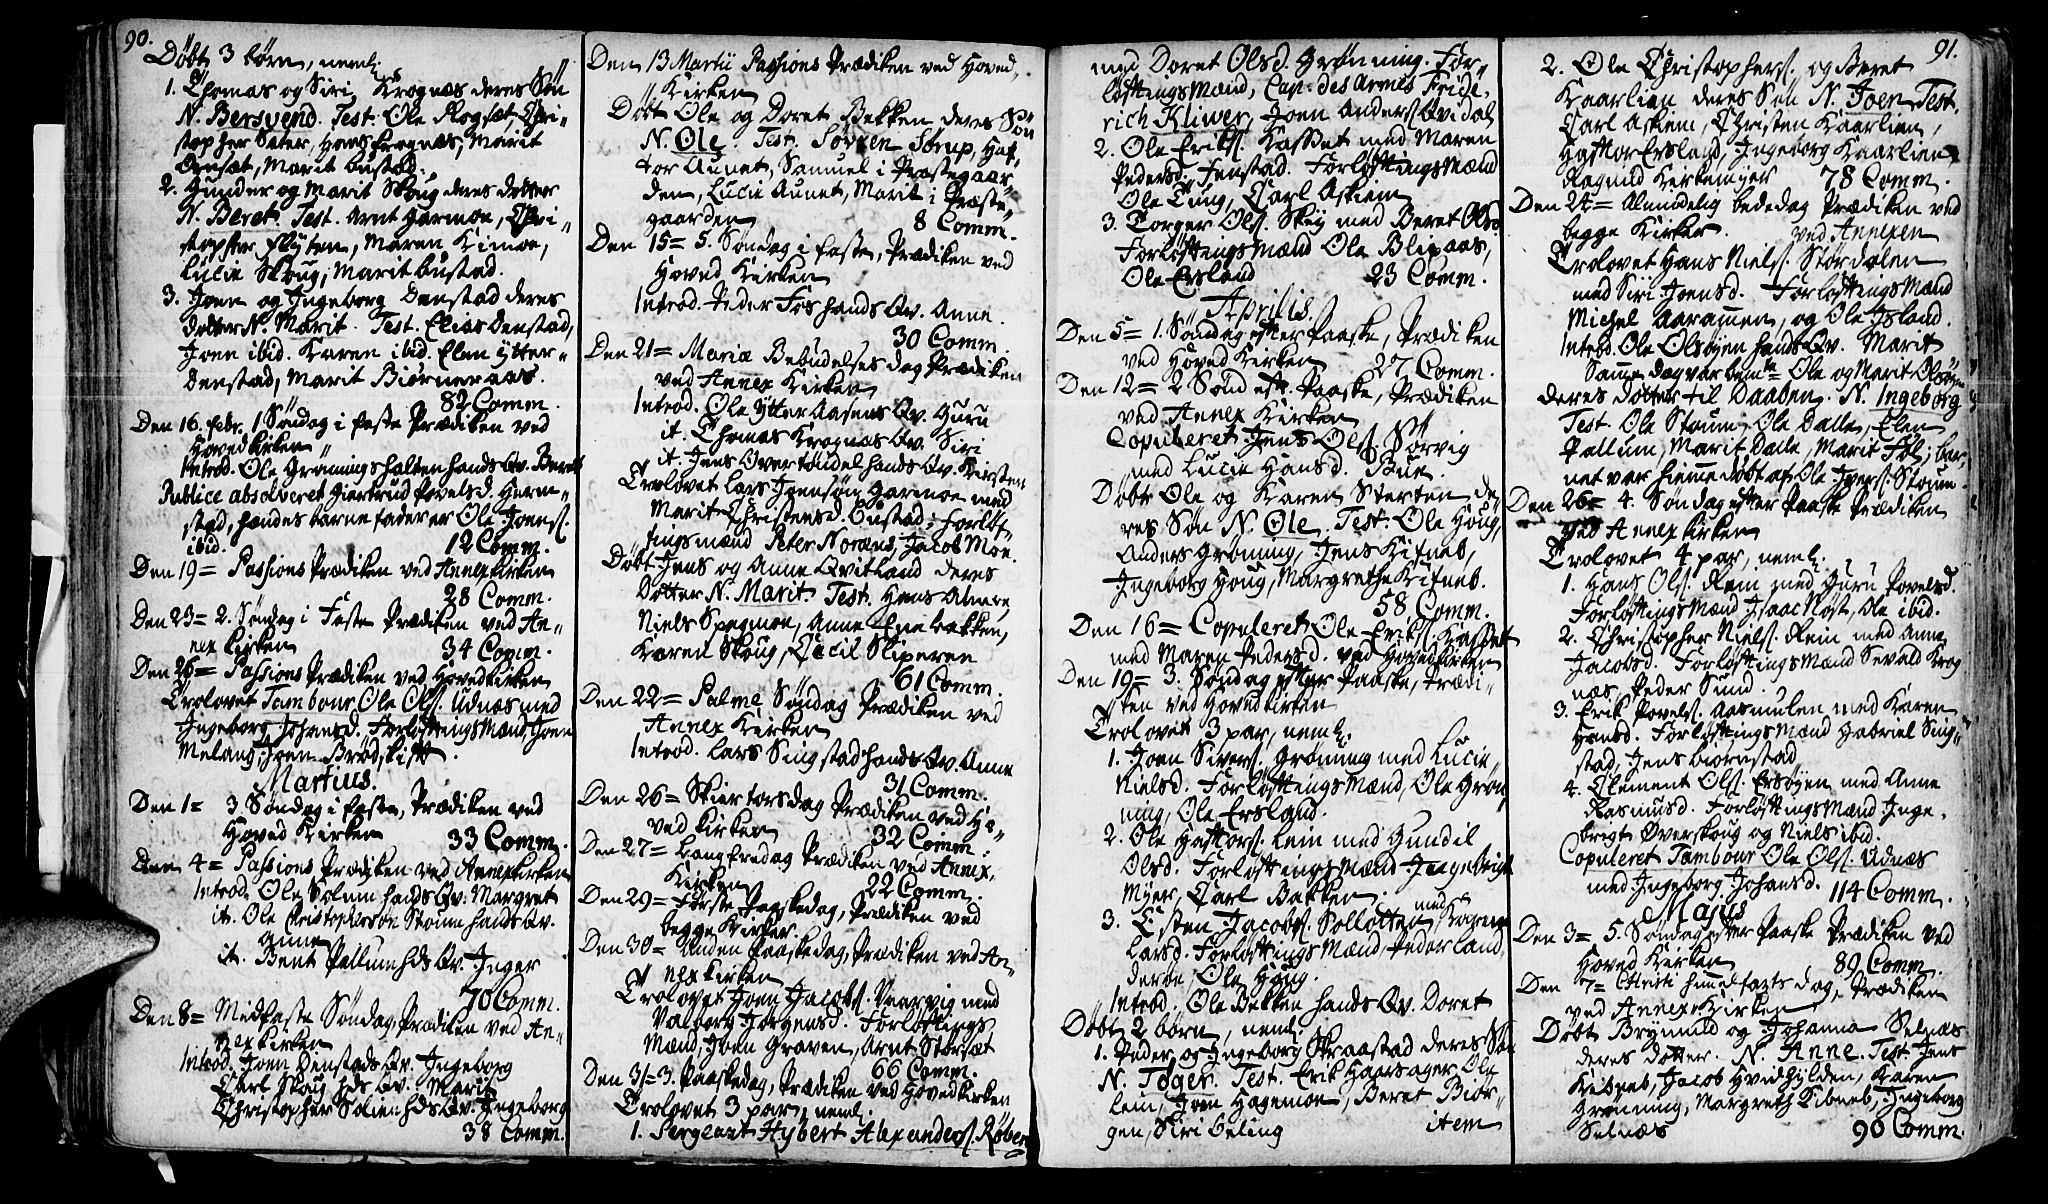 90.
Döbt 3 börn, neml.
1. Thomas og Siri Krognæs deres Sön
N. Bersvend. Test. Ole Flogsæt Chri-
stopher Sæter, Hans Krognæs, Marit
Onsæt, Marit bustad.
2. Gunder og Marit Skoug deres dotter
N. Beret. Test. Arnt Garmoe, Chri-
stopher Flyten, Maren Kimoe,
Lucie Skoug, Marit bustad.
3. Joen og Ingeborg Denstad deres
dotter N. Marit. Test. Elias Denstad,
Joen ibid. Karen ibid. Elen ytter-
Denstad, Marit Biörneraas.
82 Comm.
Den 16. Febr. 1 Söndag i faste Prædiken ved
Hovedkirken
Introd. Ole Grönningshalten hands Qv. Beret
Publice absolveret Giertrud Povelsd. Herm-
stad, hendes barnefader er Ole Joens.
ibid. 12 Comm.
Den 19= Passions Prædiken ved Annexkirken
28 Comm.
Den 23= 2. Söndag i Faste Prædiken ved An-
nex kirken 34 Comm.
Den 26= Passions Prædiken ved Hovedkirken
Trolovet Tambour Ole Ols. Udnæs med
Ingeborg Johansd. Forlöftningsmænd, Joen
Meland, Joen Brödskift.
Martius.
Den 1= 3 Söndag i faste, Prædiken ved
Hoved Kirken 33 Comm.
Den 4= Passions Prædiken ved Annexkirken
Introd. Ole Solum hands Qv. Margret
it. Ole Christopherson Stoum hands Qv.
Anne
it. Bent Pallum hds Qv. Inger
70 Comm.
Den 8= Medfaste Söndag, Prædiken ved An-
nex kirken
Introd. Joen Denstads Qv. Ingeborg
Carl Skoug hds Qv. Marit
Christopher Solien hds Qv. Ingeborg
38 Comm.
Den 13 Martii Passions Prædiken ved Hoved
Kirken
Döbt Ole og Doret Bekken deres Sön
N. Ole. Test. Sörren Storup, Haf-
tor Aunet, Samuel i Præstegaar-
den, Lucie Aunet, Marit i Præste-
gaarden 8 Comm.
Den 15= 5. Söndag i faste, Prædiken ved
Hoved Kirken
Introd. Peder Fos hands Qv. Anne.
30 Comm.
Den 21= Mariæ Bebudelses dag Prædiken
ved Annex Kirken
Introd. Ole ytter Aasens Qv. Guru
it. Thomas Krognæs Qv. Siri
it. Jens Overtöndel hands Qv. Kersten
Trolovet Lars Joensön Garmoe med
Marit Christensd. Bustad; Forlöf-
tingsmænd Peter Noræus, Jacob Moe.
Döbt Jens og Anne Qvitland deres
Dotter N. Marit. Test. Hans Almaae,
Niels Spegmoe, Anne Enebakken,
Karen Skoug, Cicil Sliperen
61 Comm.
Den 22= Palme Söndag Prædiken ved
Annex Kirken
Introd. Lars Singstad hands Qv. Anne
31 Comm.
Den 26= Skiertorsdag Prædiken ved Ho-
ved kirken 32 Comm.
Den 27= Langfredag Prædiken ved Annex
Kirken 22 Comm.
Den 29= Förste Paaskedag, Prædiken ved
begge Kirker.
Den 30= Anden Paaskedag, Prædiken ved An-
nexkirken
Trolovet Joen Jacobs. Vaarvig med
Valborg Jörgensd. Forlöftings
Mænd, Joen Graven, Arnt Storsæt
66 Comm.
Den 31= 3. Paaskedag, Prædiken ved Hovedkirken
Trolovet 3 par, neml.
1. Sergeant Hybert Alexanders. Röberg
med Doret Olsd. Grönning. For-
löftningsmænd, Cap. des Armes Fride-
rich Kliwer, Joen Anders. Qvidal
2. Ole Eriks. Kasset med Maren
Pedersd. Fenstad. Forlöftningsmænd
Ole Ting, Carl Askiem
3. Torger Ols. Sköy med Beret Olsd.
Forlöftningsmænd Ole Blixaas,
Ole Ersland 23 Comm.
Aprilis.
Den 5= 1. Söndag efter Paaske, Prædiken
ved Hoved Kirken 27 Comm.
Den 12= 2 Sönd. eft. Paaske, Prædiken
ved Annex Kirken
Copuleret Jens Ols. Sörvig
med Lucie Hansd. Bue.
Döbt Ole og Karen Sterten de-
res Sön N. Ole. Test. Ole Houg,
Anders Gröning, Jens Kifneb,
Ingeborg Houg, Margrethe Kifneb.
58 Comm.
Den 16= Copuleret Ole Eriks. Kasset
med Maren Pedersd. ved Hovedkirken
Den 19= 3. Söndag efter Paaske, Prædi-
ken ved Hovedkirken
Trolovet 3 par, neml.
1. Joen Sivers. Gröning med Lucie
Nielsd. Forlöftningsmænd, Ole Grön-
ning, Ole Ersland.
2. Ole Haftors. Lein med Gundil
Olsd. Forlöftningsmænd Ingebrigt
Myer, Carl Bakken.
3. Esten Jacobs. Sollötten med Karen
Larsd. Forlöftningsmænd Peder Land
deroe Ole Houg.
Introd. Ole Bekken hands Qv. Doret
Döbt 2 börn, neml.
1. Peder og Ingeborg Skraastad deres Sön
N. Töger. Test. Erik Haarsager, Ole
Lein, Joen Hagemoe, Beret Biör-
gen, Siri Geling item
91.
2. Ole Christophers. og Beret
Kaarlien deres Sön N. Joen Test.
Carl Askiem, Christen Kaarlien,
Haftor Ersland, Ingeborg Kaarlien
Ragnild Kirkemyer 78 Comm.
Den 24= Almindelig bededag Prædiken ved
begge Kirker. ved Annexen
Trolovet Hans Niels. Stördalen
med Siri Joensd. Forlöftnings Mænd
Michel Aaramen, og Ole Island.
Introd. Ole Olsöyen hands Qv. Marit
Samme dag var bemte Ole og Marit Olsöyen
deres dotter til Daaben. N. Ingeborg
Test. Ole Stoum, Ole Dalle, Elen
Pallum, Marit Dalle, Marit Föl; bar-
net var hiemmedöbt af Ole Ivers. Stoum.
Den 26= 4. Söndag efter Paaske Prædiken
ved Annex kirken
Trolovet 4 par, neml.
1. Hans Ols. Rem med Guru Povelsd.
Forlöftningsmænd Isaac Nöst, Ole ibid.
2. Christopher Niels. Rein med Anne
Jacobsd. Forlöftningsmænd Sevald Krog
næs, Peder Sund.
3. Erik Povels. Aasmulen med Karen
Hansd. Forlöftningsmænd Gabriel Sing-
stad, Jens biörnstad
4. Clement Ols. Ersöyen med Anne
Rasmusd. Forlöftningsmænd Inge-
brigt Overskoug og Niels ibid.
Copuleret Tambour Ole Ols. Udnæs
med Ingeborg Johansd. 114 Comm.
Majus
Den 3= 5. Söndag efter Paaske Prædiken ved
Hoved Kirken 89 Comm.
Den 7= Christi himmelfarts dag, Prædiken
ved Annex Kirken
Döbt Brynild og Johanna Selnæs
deres dotter. N. Anne. Test. Jens
Kibneb, Jacob Hveidhylden, Karen
Grönning, Margreth Kibneb, Ingeborg
Selnæs 90 Comm.